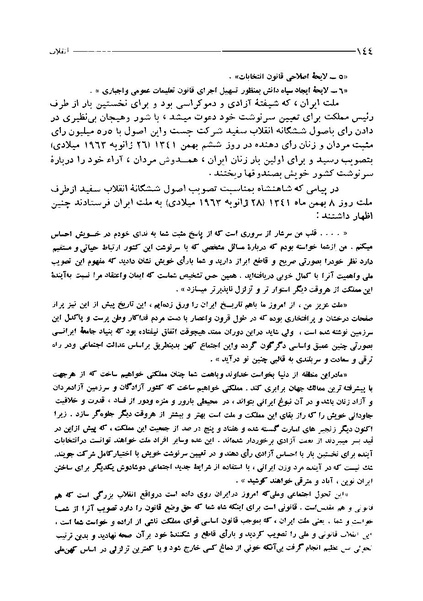 ۱۴۴ انقلاب
«۵ – لایحهٔ اصلاحی قانون انتخابات» .
۶ – لایحهٔ ایجاد سپاه دانش بمنظور تسهیل اجرای قانون تعلیمات عمومی واجباری » .
ملت ایران ، که شیفتهٔ آزادی و دموکراسی بود و برای نخستین بار از طرف
رئیس مملکت برای تعیین سرنوشت خود دعوت میشد ، با شور وهیجان بی‌نظیری در
دادن رای باصول ششگانه انقلاب سفید شرکت جست واین اصول با ۵ره میلیون رای
مثبت مردان و زنان رای دهنده در روز ششم بهمن ۱۳۴۱ (۲۶ ژانویه ۱۹۶۳ میلادی)
بتصویب رسید و برای اولین بار زنان ایران ، همدوش مردان ، آراء خود را دربارهٔ
سرنوشت کشور خویش بصندوقها ریختند .
در پیامی که شاهنشاه بمناسبت تصویب اصول ششگانهٔ انقلاب سفید ازطرف
ملت روز ۸ بهمن ماه ۱۳۴۱ (۲۸ ژانویه ۱۹۶۳ میلادی) به ملت ایران فرستادند چنین
اظهار داشتند :
« . . . . قلب من سرشار از سروری است که از پاسخ مثبت شما به ندای خودم در خویش احساس
میکنم . من ازشما خواسته بودم که دربارهٔ مسائل مشخصی که با سرنوشت این کشور ارتباط حیاتی و مستقیم
دارد نظر خودرا بصورتی صریح و قاطع ابراز دارید و شما بارأی خویش نشان دادید که مفهوم این تصویب
ملی واهمیت آنرا با کمال خوبی دریافته‌اید . همین حس تشخیص شماست که ایمان واعتقاد مرا نسبت به‌آیندهٔ
این مملکت از هروقت دیگر استوار تر و تزلزل ناپذیرتر میسازد » .
«ملت عزیز من ، از امروز ما باهم تاریخ ایران را ورق زده‌ایم ، این تاریخ پیش از این نیز پراز
صفحات درخشان و پرافتخاری بوده که در طول قرون واعصار با دست مردم فداکار وطن پرست و پاکدل این
سرزمین نوشته شده است ، ولی شاید دراین دوران ممتد هیچوقت اتفاق نیفتاده بود که بنیاد جامعهٔ ایرانی
بصورتی چنین عمیق واساسی دگرگون گردد واین اجتماع کهن بدینطریق براساس عدالت اجتماعی ودر راه
ترقی و سعادت و سربلندی به قالبی چنین نو درآید » .
«مادراین منطقه از دنیا بخواست خداوند وباهمت شما چنان مملکتی خواهیم ساخت که از هرجهت
با پیشرفته ترین ممالک جهان برابری کند . مملکتی خواهیم ساخت که کشور آزادگان و سرزمین آزادمردان
و آزاد زنان باشد و در آن نبوغ ایرانی بتواند ، در محیطی بارور و منزه ودور از فساد ، قدرت و خلاقیت
جاودانی خویش را که راز بقای این مملکت و ملت است بهتر و بیشتر از هروقت دیگر جلوه‌گر سازد . زیرا
اکنون دیگر زنجیر های اسارت گسسته شده و هفتاد و پنج در صد از جمعیت این مملکت ، که پیش ازاین در
قید بسر میبردند از نعمت آزادی برخوردار شده‌اند . این عده وسایر افراد ملت خواهند توانست درانتخابات
آینده برای نخستین بار با احساس آزادی رأی دهند و در تعیین سرنوشت خویش با اختیارکامل شرکت جویند.
شک نیست که در آینده مرد وزن ایرانی ، با استفاده از شرایط جدید اجتماعی دوشادوش یکدیگر برای ساختن
ایران نوین ، آباد و مترقی خواهند کوشید » .
«این تحول اجتماعی وملی‌که امروز درایران روی داده است درواقع انقلاب بزرگی است که هم
قانونی و هم مقدس‌است . قانونی است برای اینکه شاه شما که حق وضع قانون را دارد تصویب آنرا از شما
خواست و شما . یعنی ملت ایران ، که بموجب قانون اساسی قوای مملکت ناشی از اراده و خواست شما است ،
این انقلاب قانونی و ملی را تصویب کردید و بارأی قاطع و شکنندهٔ خود بر آن صحه نهادید و بدین ترتیب
تحولی بس عظیم انجام گرفت بی‌آنکه خونی از دماغ کسی خارج شود و با کمترین تزلزلی در اساس کهن‌ملی